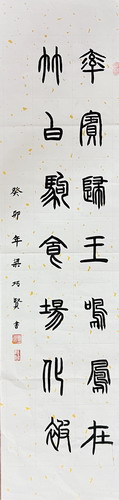 率賓歸王鳴鳳在
竹白駒食場化被
癸卯年梁巧賢書